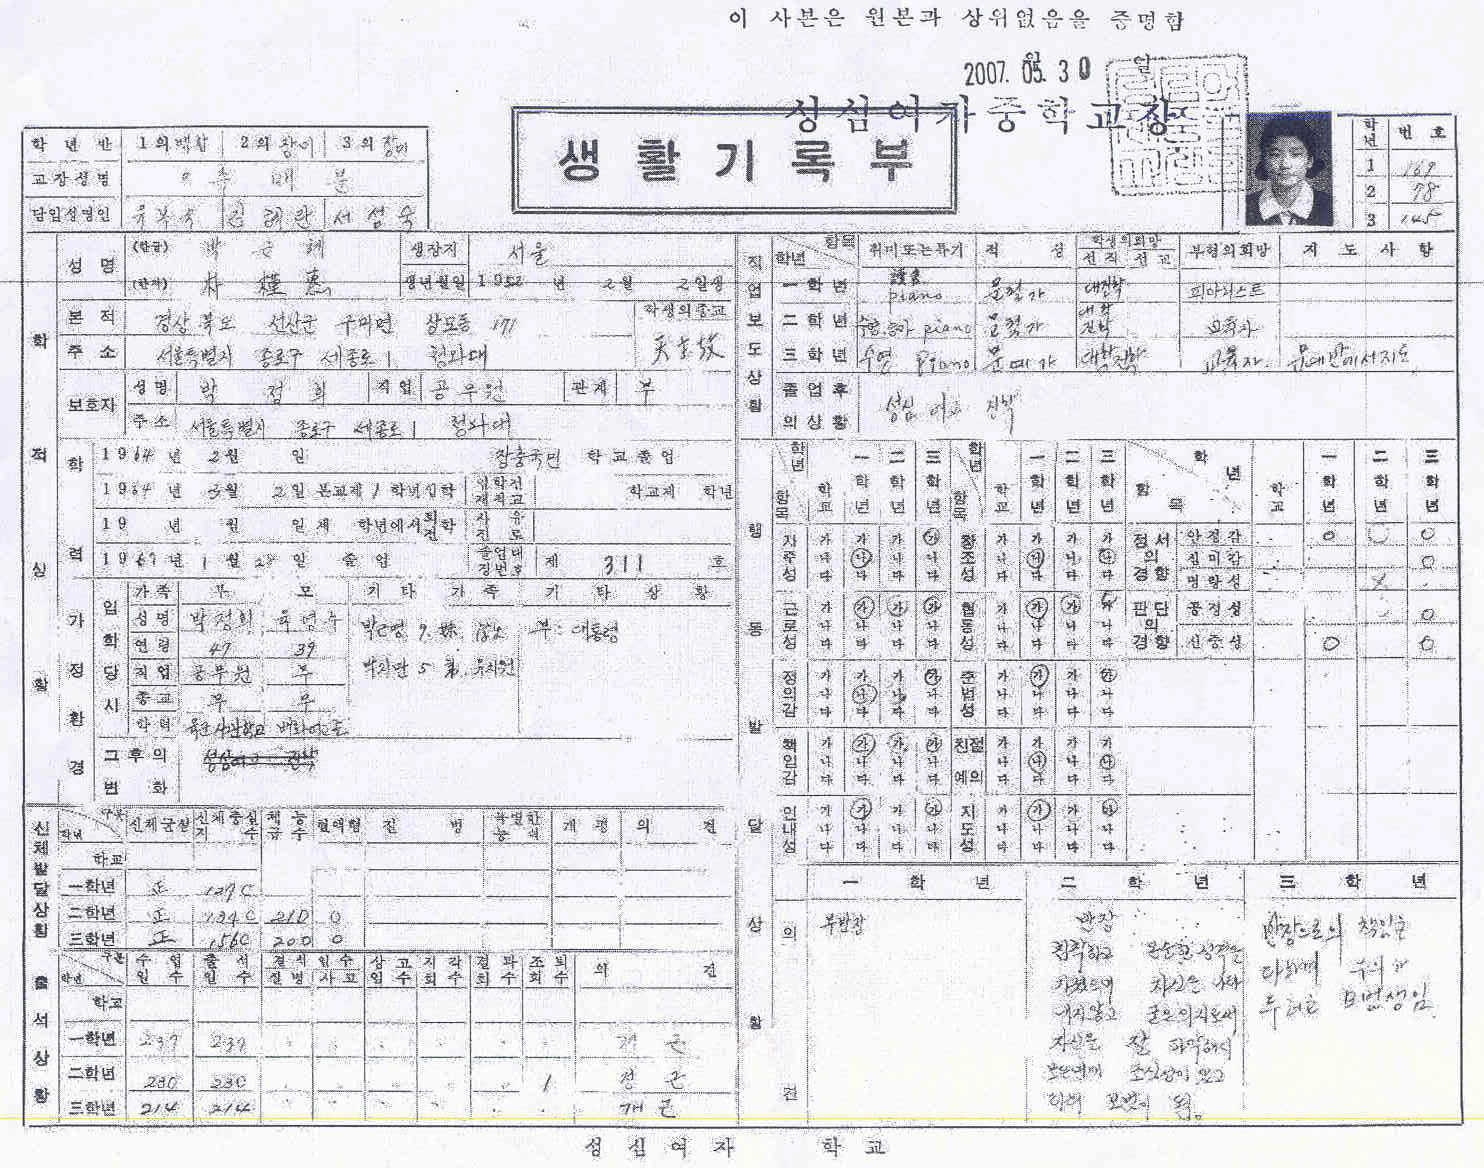 이 사본은 원본과 상위없음을 증명함
2007. 05. 30 일
성심여자중학교장
생활기록부
학년반 1의 백합 2의 장미 3의 장미
교장성명
담임성명인
학년 번호
1 169
2 78
3 145
학적상황
성명 (한글) 박근혜 생장지 서울
(한자) 朴槿惠 생년월일 1952년 2월 2일생
본적 경상북도 선산군 구미면 상모동 171 학생의종교 天主敎
주소 서울특별시 종로구 세종로 1 청와대
보호자 성명 박정희 직업 공무원 관계 부
주소 서울특별시 종로구 세종로 1 청와대
학력
1964년 2월 일 장충국민 학교졸업
1964년 3월 2일 본교제 1학년입학 입학전 재적교 학교제 학년
19 년 월 일 제 학년에서 퇴전학 사유 진로
1967년 1월 28일 졸업 졸업대장번호 제 311 호
가정환경
입학당시
가족 부 모 기타가족 기타상황
성명 박정희 육영수 박근영 9. 妹. 부: 대통령
연령 47 39
직업 공무원 무 박지만 5 弟. 유치원
종교 무 무
학력 육군사관학교
그후의 변화 성심여고 진학
신체발달상황
구분 학년 신체균형 신체충실지수 체능급수 혈액형 질병 특별한 능력 개평 의견
학교
一학년 正 129C
二학년 正 134C 21D O
三학년 正 156C 20D O
출석상황
구분 학년 수업일수 출석일수 결석일수 질병 사고 상고일수 지각회수 결과회수 조퇴회수 의견
학교
一학년 237 237 개근
二학년 230 230 1 정근
三학년 214 214 개근
직업보도상황
항목 학년 취미또는특기 적성 학생의희망 선직 선교 부형의희망 지도사항
一학년 讀書 piano 문필가 대진학 피아니스트
二학년 piano 문필가 대학진학 교육자
三학년 수영 Piano 문예가 대학진학 교육자 문예반에서지도
졸업후의상황 성심여고 진학
행동발달상황
학년 항목 학교 一학년 二학년 三학년
학년 항목 학교 一학년 二학년 三학년
학년 항목 학교 一학년 二학년 三학년
자주성 가 나 다
창조성 가 나 다
정서의 경향 안정감 O O O
심미감 O
명랑성
근로성 가 나 다
협동성 가 나 다
판단의 경향 공정성 O
신중성 O O
정의감 가 나 다
준범성 가 나 다
책임감 가 나 다
친절 예의 가 나 다
인내성 가 나 다
지도성 가 나 다
의견
一학년 二학년 三학년
부반장
반장
침착하고 온순한 성격을
가졌으며 자신을 나타
내지않고 굳은의지로써
자신을 잘 파악하시
조심성이 있고
모범이 됨.
반장으로의 책임을
다하며
모범생임.
성심여자 학교